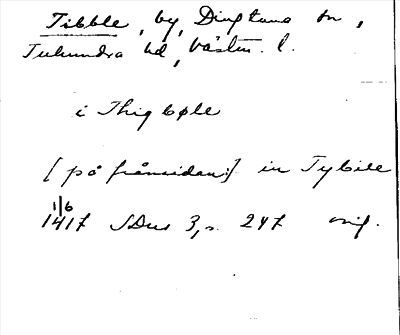 Tibble, by, Dingtuna sn,
Tuhundra hd, Västm. l.
i Thigbøle
[på frånsidan:] in Tybile
1/6
1417 SDns 3, s. 247 orig.